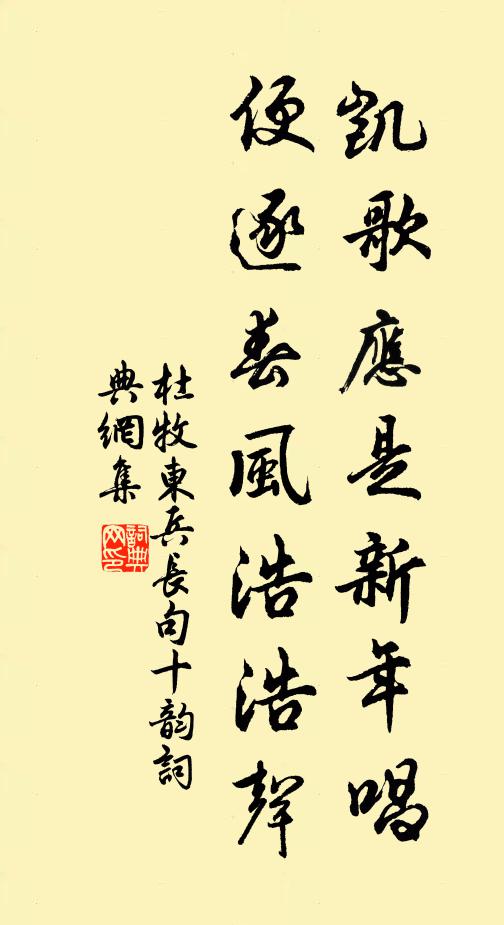 凱歌應是新年唱
便逐春風浩浩聲
杜牧東兵長句十韵詞
典網集
詞典网印